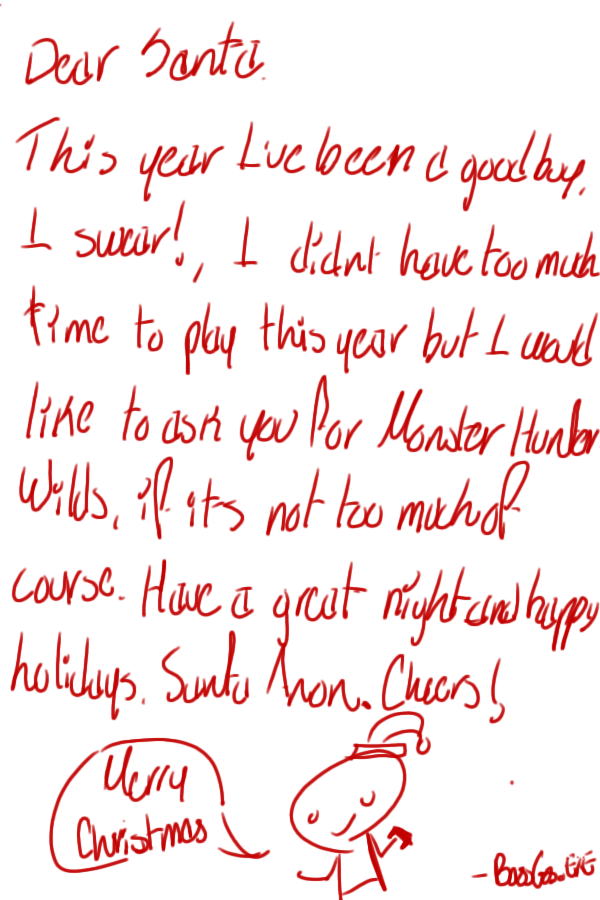 Dear Santa.
This year I've been a good boy.
I swear!, I didnt have too much
time to play this year but I would
like to ask you for Monster Hunter
Wilds, if it's not too much of
course. Have a great night and happy
holidays. Santa Anon. Cheers!
Merry
Christmas